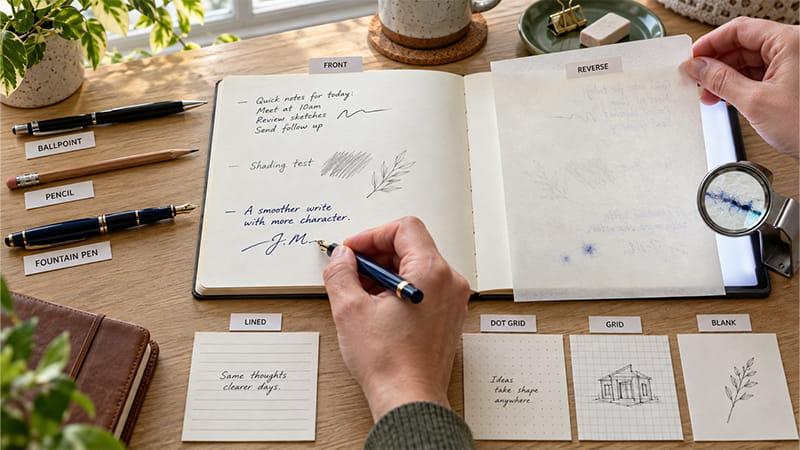 FRONT
REVERSE
— Quick notes for today:
Meet at 10am
Review sketches
Send follow up
— Shading test
— A smoother write
with more character.
J.M.
BALLPOINT
PENCIL
FOUNTAIN PEN
LINED
Same thoughts
clearer days.
DOT GRID
Ideas
take shape
anywhere.
GRID
BLANK